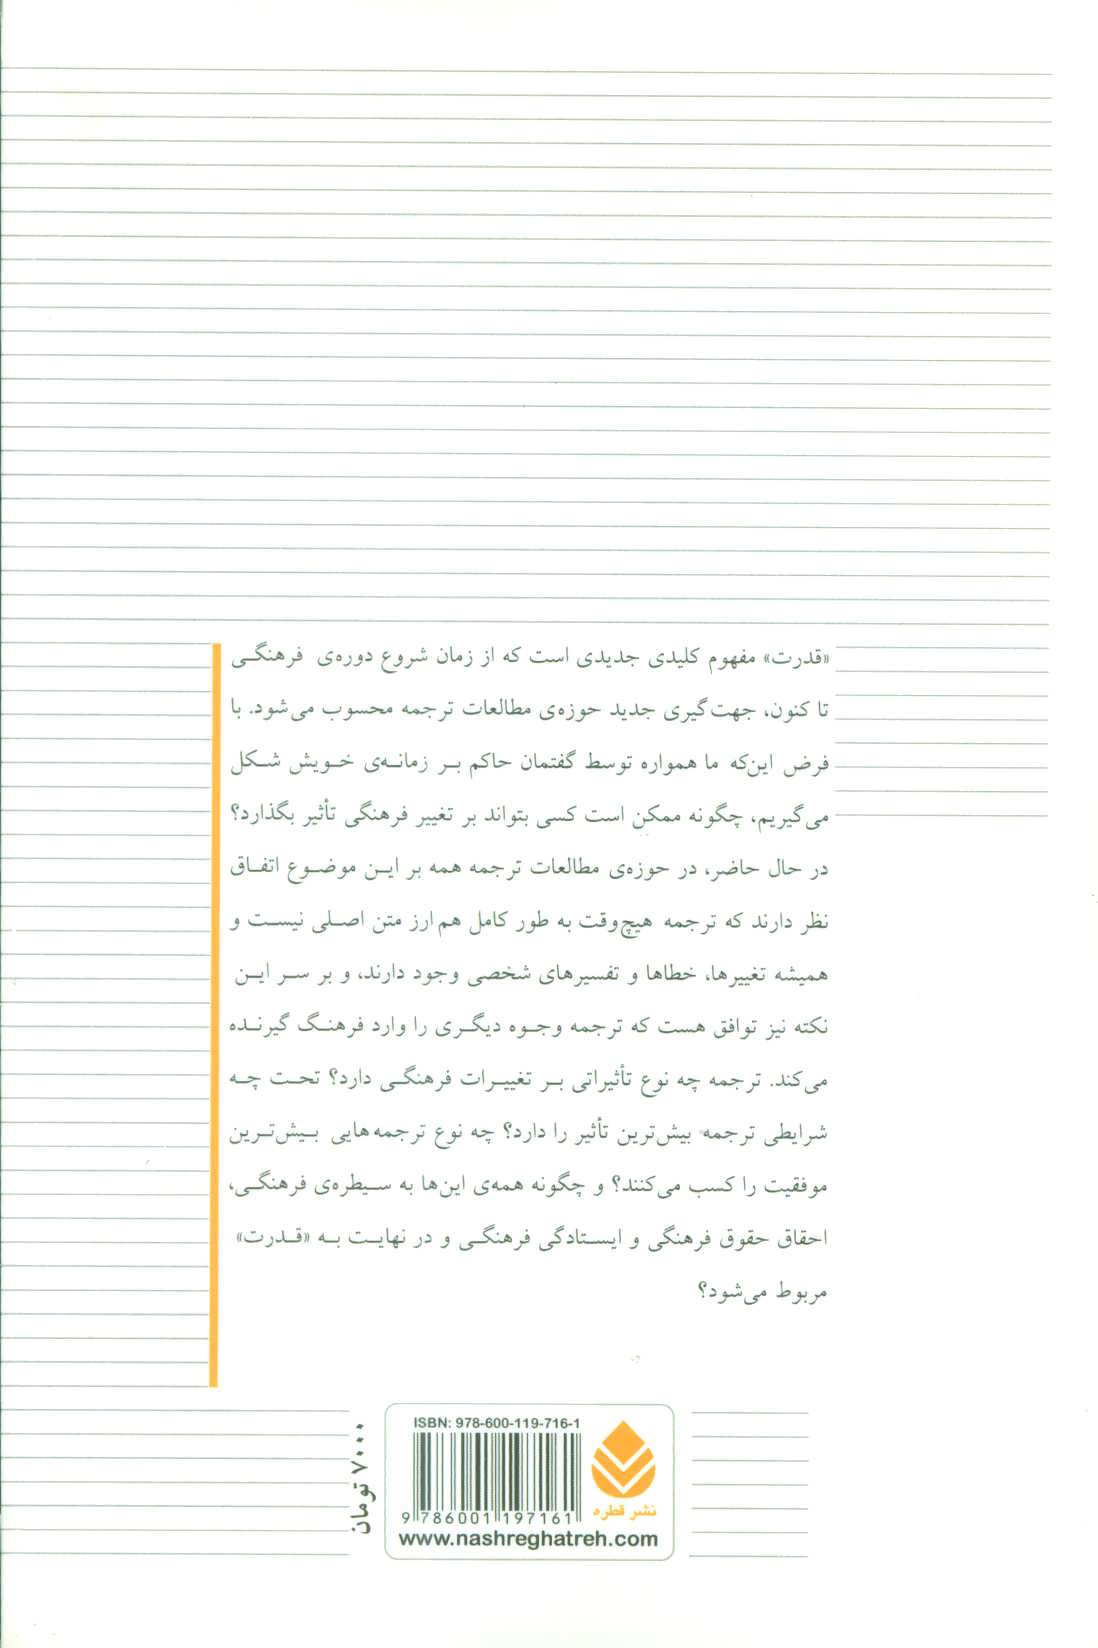 «قدرت» مفهوم کلیدی جدیدی است که از زمان شروع دوره‌ی فرهنگی
تا کنون، جهت‌گیری جدید حوزه‌ی مطالعات ترجمه محسوب می‌شود. با
فرض این‌که ما همواره توسط گفتمان حاکم بر زمانه‌ی خویش شکل
می‌گیریم، چگونه ممکن است کسی بتواند بر تغییر فرهنگی تأثیر بگذارد؟
در حال حاضر، در حوزه‌ی مطالعات ترجمه همه بر این موضوع اتفاق
نظر دارند که ترجمه هیچ‌وقت به طور کامل هم‌ارز متن اصلی نیست و
همیشه تغییرها، خطاها و تفسیرهای شخصی وجود دارند، و بر سر این
نکته نیز توافق هست که ترجمه وجوه دیگری را وارد فرهنگ گیرنده
می‌کند. ترجمه چه نوع تأثیراتی بر تغییرات فرهنگی دارد؟ تحت چه
شرایطی ترجمه بیش‌ترین تأثیر را دارد؟ چه نوع ترجمه‌هایی بیش‌ترین
موفقیت را کسب می‌کنند؟ و چگونه همه‌ی این‌ها به سیطره‌ی فرهنگی،
احقاق حقوق فرهنگی و ایستادگی فرهنگی و در نهایت به «قدرت»
مربوط می‌شود؟
ISBN: 978-600-119-716-1
9 786001 197161
نشر قطره
www.nashreghatreh.com
۷۰۰۰ تومان